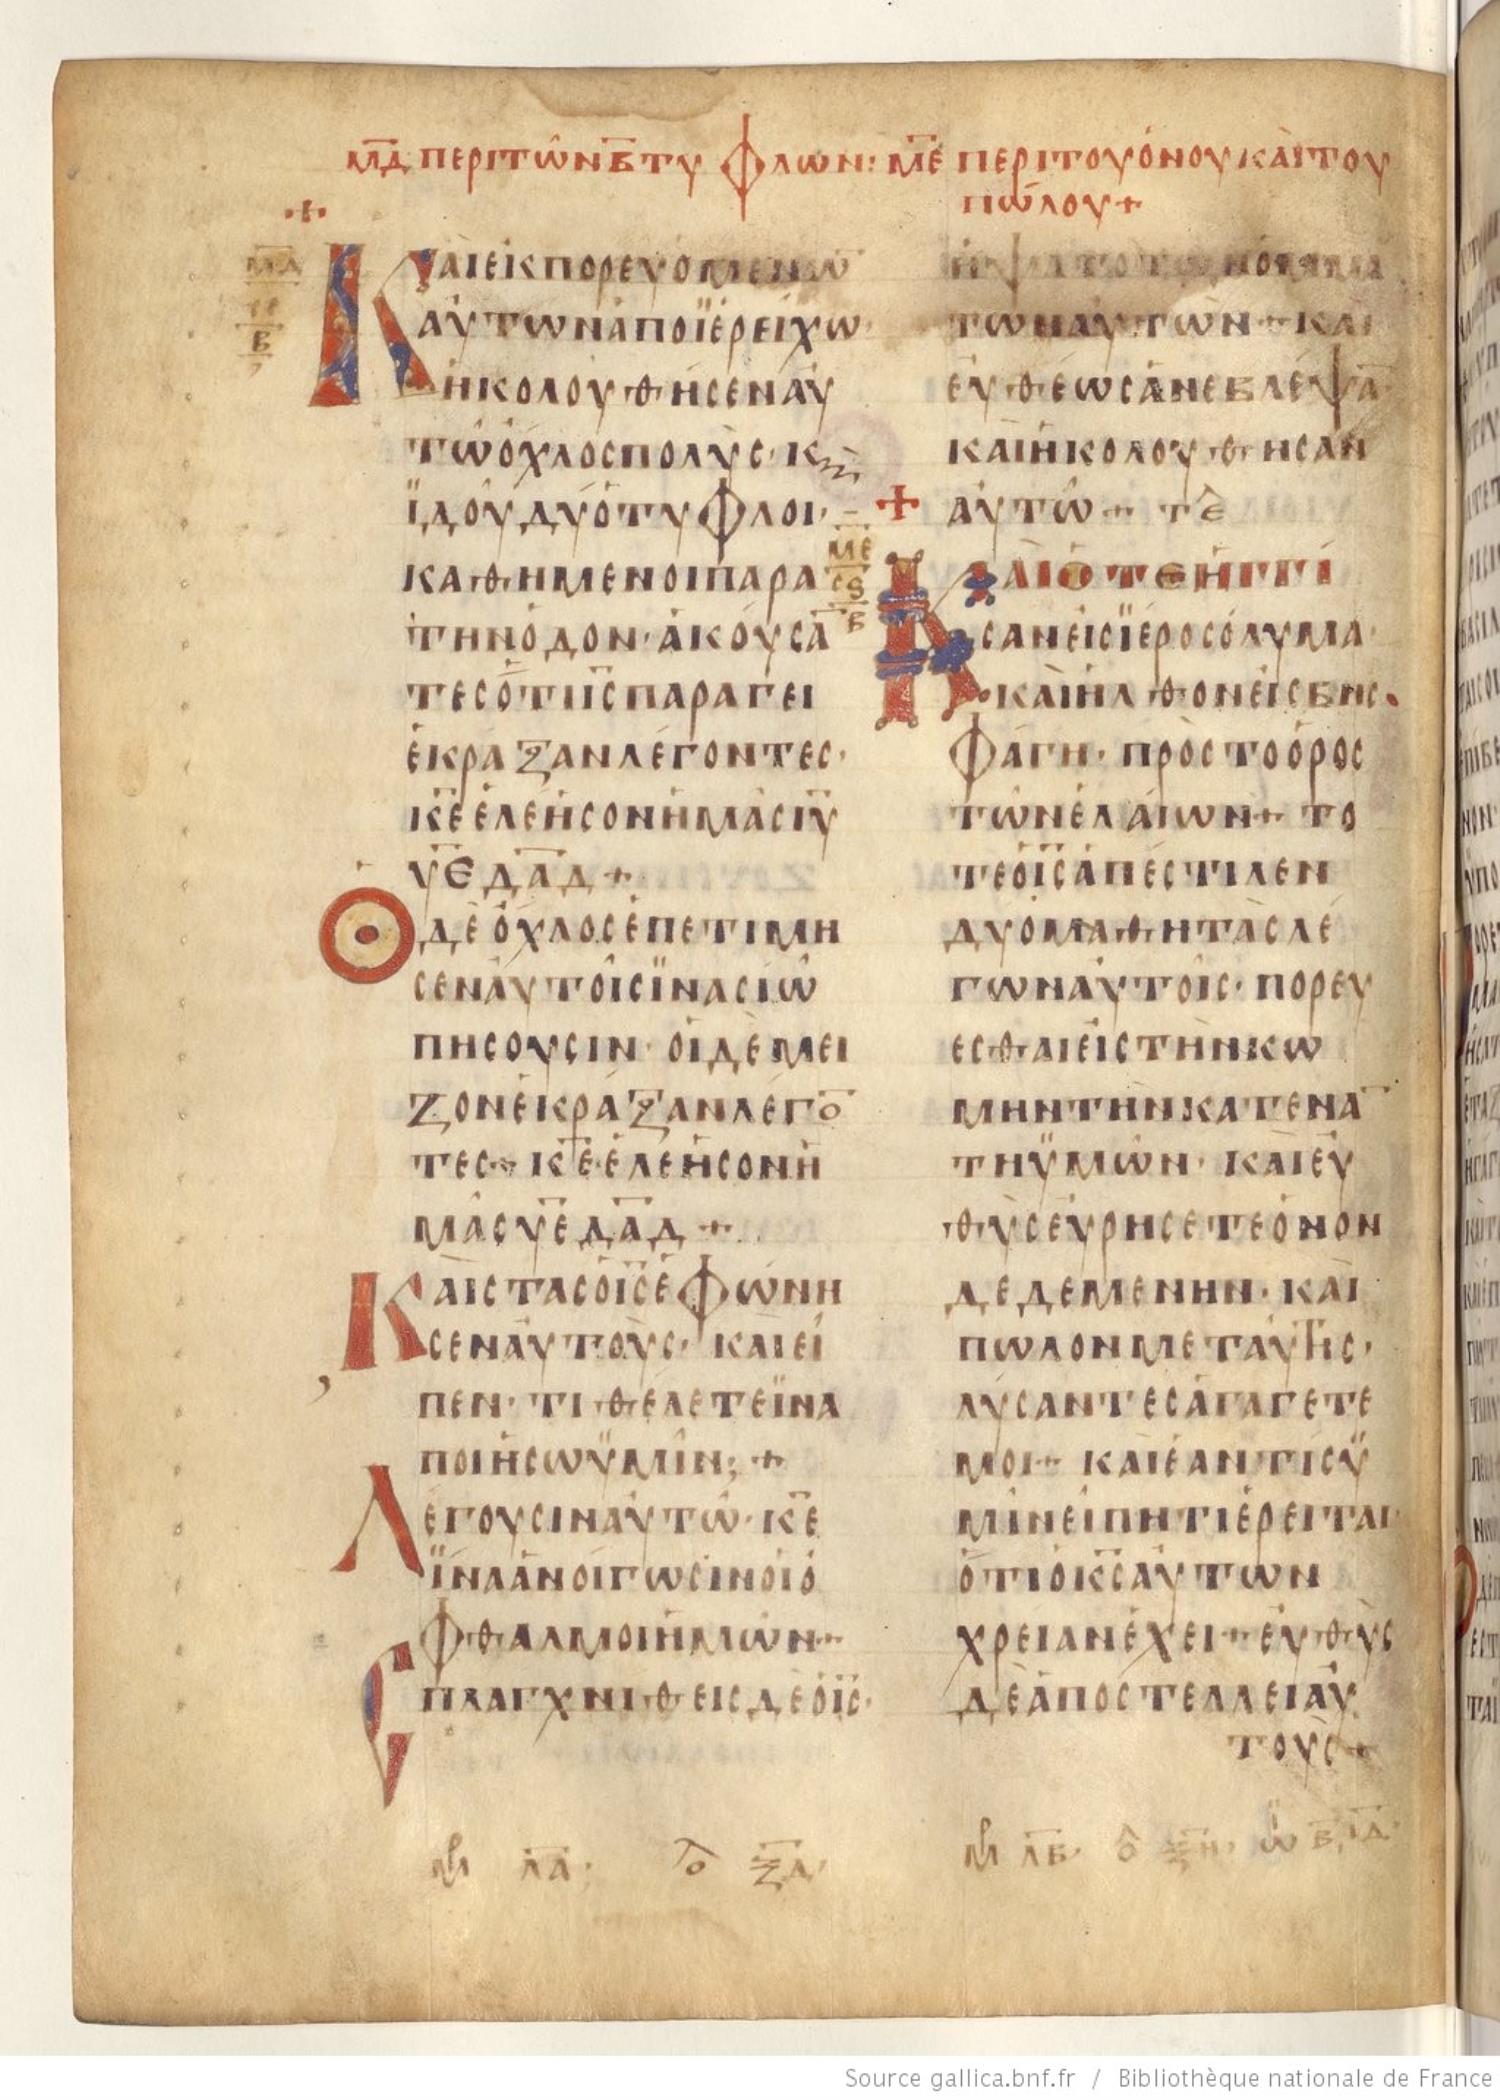 ΜΔ ΠΕΡΙ ΤΩΝ Β ΤΥΦΛΩΝ: ΜΕ ΠΕΡΙ ΤΟΥ ΟΝΟΥ ΚΑΙ ΤΟΥ
ΠΩΛΟΥ+
ΜΔ
Β
ΚΑΙ ΕΚΠΟΡΕΥΟΜΕΝΩ̅
ΑΥΤΩΝ ΑΠΟ ΪΕΡΕΙΧΩ·
ΗΚΟΛΟΥΘΗСΕΝ ΑΥ
ΤΩ ΟΧΛΟС ΠΟΛΥС· Κ
ΪΔΟΥ ΔΥΟ ΤΥΦΛΟΙ·
ΚΑΘΗΜΕΝΟΙ ΠΑΡΑ
ΤΗΝ ΟΔΟΝ· ΑΚΟΥСΑ̅
ΤΕС ΟΤΙ Ι̅С̅ ΠΑΡΑΓΕΙ
ΕΚΡΑΞΑΝ ΛΕΓΟΝΤΕС·
Κ̅Ε̅ ΕΛΕΗСΟΝ ΗΜΑС Ι̅Υ̅
Υ̅Ε̅ Δ̅Α̅Δ̅+
Ο ΔΕ ΟΧΛΟС ΕΠΕΤΙΜΗ
СΕΝ ΑΥΤΟΙС ΪΝΑ СΙΩ
ΠΗСΟΥСΙΝ· ΟΙ ΔΕ ΜΕΙ
ΖΟΝ ΕΚΡΑΞΑΝ ΛΕΓΟ̅
ΤΕС+ Κ̅Ε̅ ΕΛΕΗСΟΝ Η
ΜΑС Υ̅Ε̅ Δ̅Α̅Δ̅+
ΚΑΙ СΤΑС Ο Ι̅С̅ ΕΦΩΝΗ
СΕΝ ΑΥΤΟΥС· ΚΑΙ ΕΙ
ΠΕΝ· ΤΙ ΘΕΛΕΤΕ ΪΝΑ
ΠΟΙΗСΩ ΫΜΙΝ; +
ΛΕΓΟΥСΙΝ ΑΥΤΩ· Κ̅Ε̅
ΪΝΑ ΑΝΟΙΓΩСΙΝ ΟΙ Ο
ΦΘΑΛΜΟΙ ΗΜΩΝ+
СΠΛΑΓΧΝΙΘΕΙС ΔΕ Ο Ι̅С̅·
ΗΨΑΤΟ ΤΩΝ ΟΜΜΑ
ΤΩΝ ΑΥΤΩΝ+ ΚΑΙ
ΕΥΘΕΩС ΑΝΕΒΛΕΨΑ̅
ΚΑΙ ΗΚΟΛΟΥΘΗСΑΝ
ΑΥΤΩ+ ΤΕ
ΜΕ
СϚ
Β
ΚΑΙ ΟΤΕ ΗΓΓΙ
СΑΝ ΕΙС ΪΕΡΟСΟΛΥΜΑ·
ΚΑΙ ΗΛΘΟΝ ΕΙС ΒΗС
ΦΑΓΗ· ΠΡΟС ΤΟ ΟΡΟС
ΤΩΝ ΕΛΑΙΩΝ+ ΤΟ
ΤΕ Ο Ι̅С̅ ΑΠΕСΤΙΛΕΝ
ΔΥΟ ΜΑΘΗΤΑС ΛΕ
ΓΩΝ ΑΥΤΟΙС· ΠΟΡΕΥ
ΕСΘΑΙ ΕΙС ΤΗΝ ΚΩ
ΜΗΝ ΤΗΝ ΚΑΤΕΝΑ̅
ΤΗ ΫΜΩΝ· ΚΑΙ ΕΥ
ΘΥС ΕΥΡΗСΕΤΕ ΟΝΟΝ
ΔΕΔΕΜΕΝΗΝ· ΚΑΙ
ΠΩΛΟΝ ΜΕΤ ΑΥΤΗС·
ΛΥСΑΝΤΕС ΑΓΑΓΕΤΕ
ΜΟΙ+ ΚΑΙ ΕΑΝ ΤΙС Ϋ
ΜΙΝ ΕΙΠΗ ΤΙ ΕΡΕΙΤΑΙ·
ΟΤΙ Ο Κ̅С̅ ΑΥΤΩΝ
ΧΡΕΙΑΝ ΕΧΕΙ+ ΕΥΘΥС
ΔΕ ΑΠΟСΤΕΛΛΕΙ ΑΥ
ΤΟΥС+
Μ ΛΑ· Ο ΞΑ·
Μ ΛΒ· Ο ΞΗ· ΙΩ Β, ΙΔ·
Source gallica.bnf.fr / Bibliothèque nationale de France